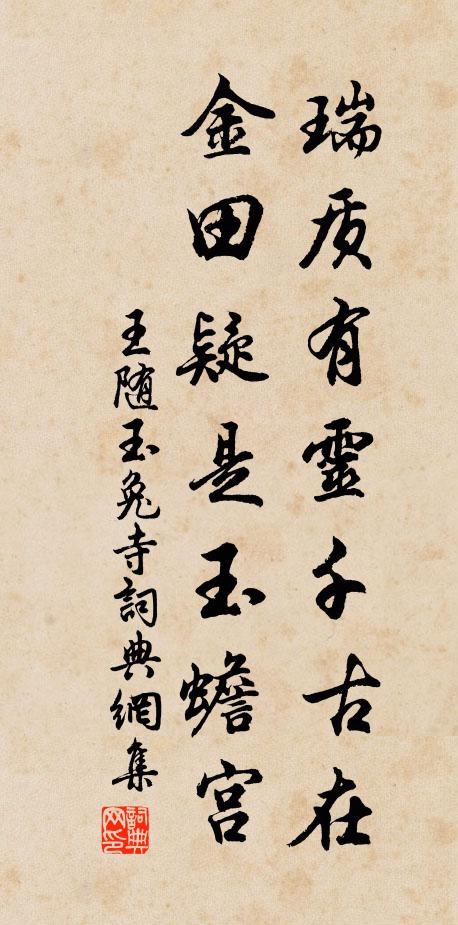 瑞质有靈千古在
金田疑是玉蟾宫
王随玉兔寺詞典網集
詞典网印